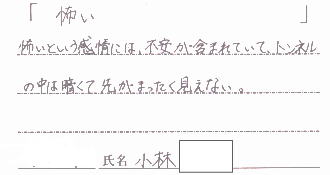 「 怖い 」
怖いという感情には、不安が含まれていて、トンネル
の中は暗くて先がまったく見えない。
氏名 小林